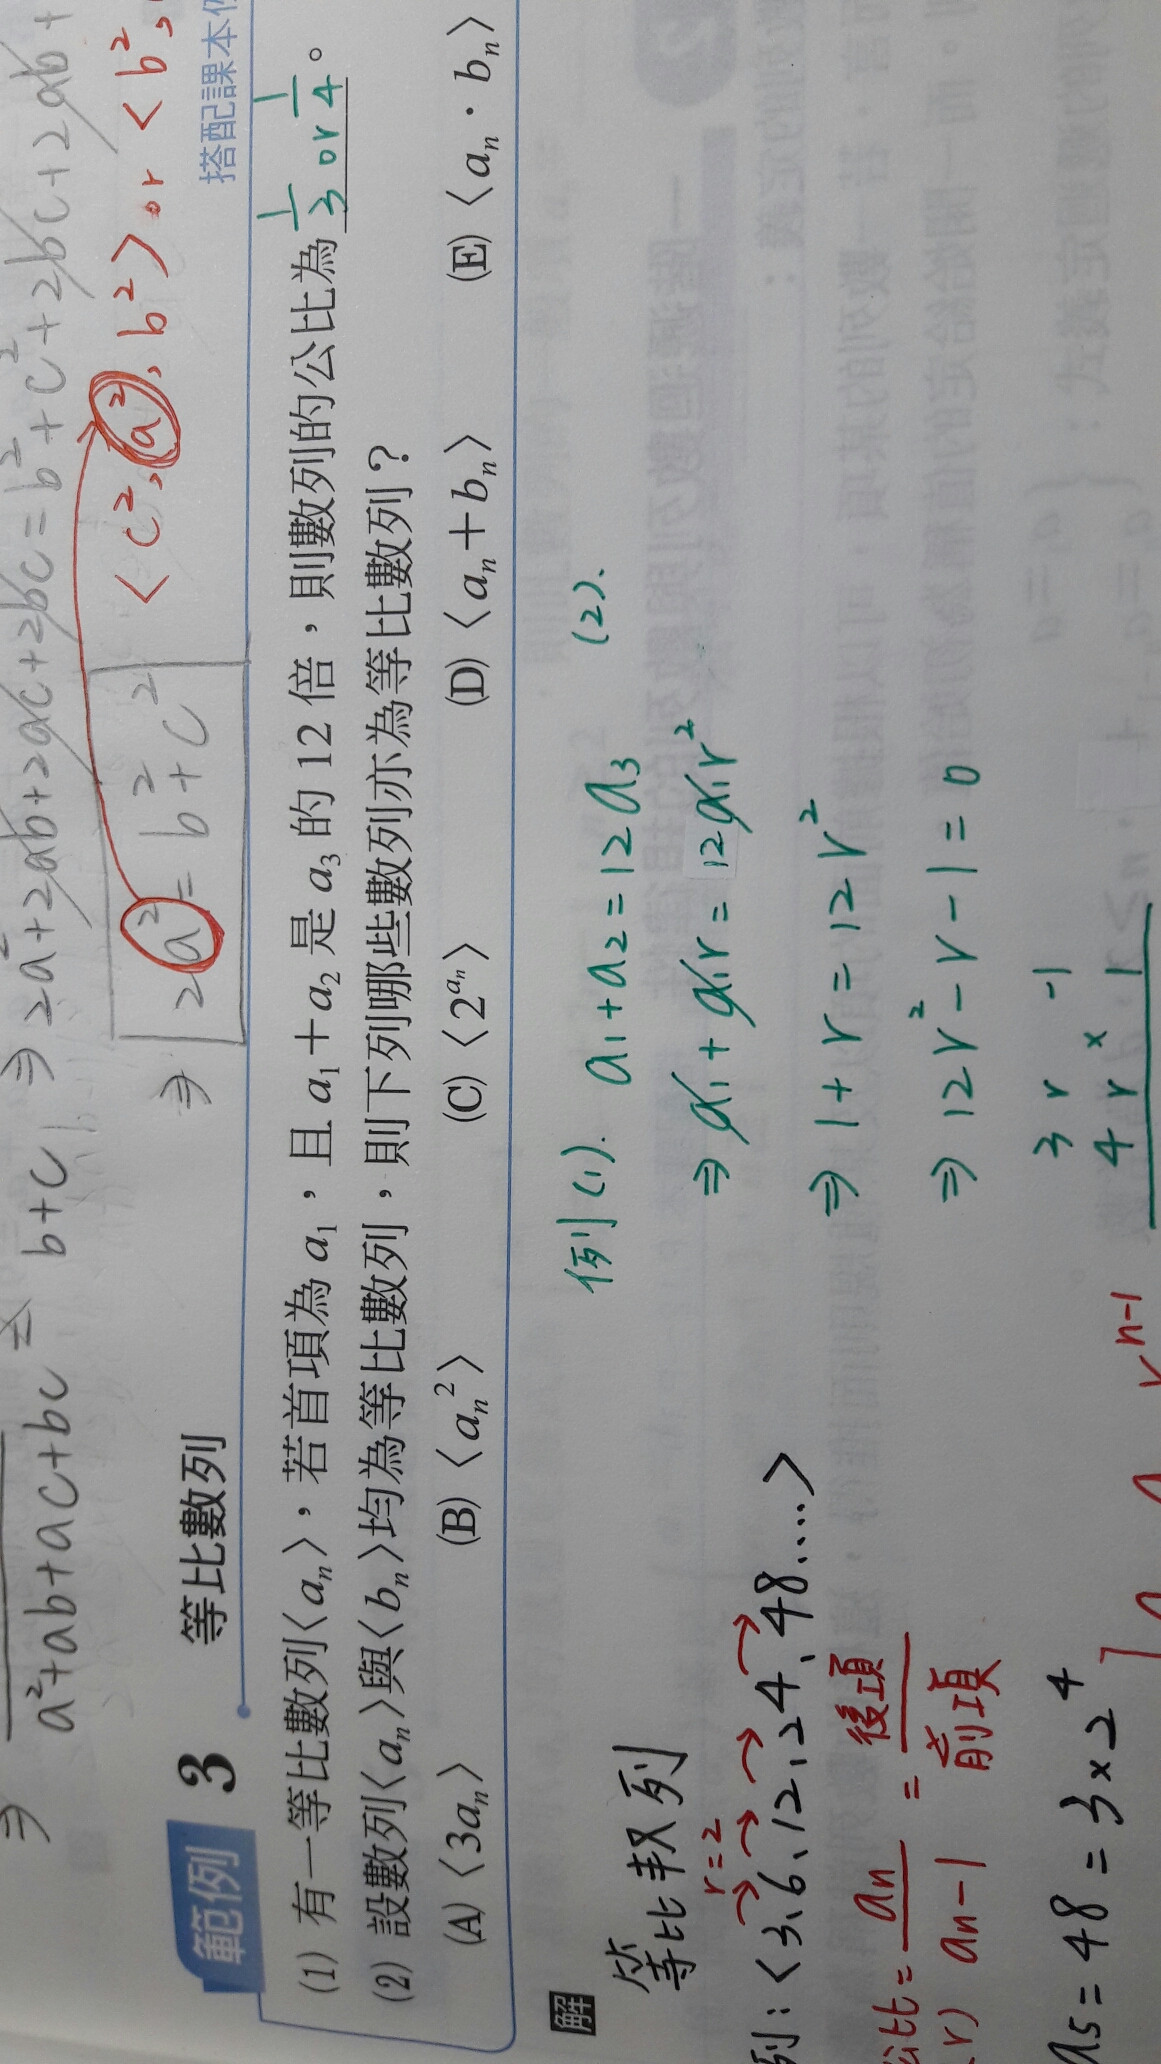 ⇒ a²+ab+ac+bc = b+c, ⇒ 2a²+2ab+2ac+2bc=b²+c²+2bc+2ab+
⇒ 2a²=b²+c² <c², a², b²> or <b²,
範例 3 等比數列
搭配課本
(1) 有一等比數列〈aₙ〉，若首項為 a₁，且 a₁＋a₂ 是 a₃ 的 12 倍，則數列的公比為 1/3 or 1/4。
(2) 設數列〈aₙ〉與〈bₙ〉均為等比數列，則下列哪些數列亦為等比數列？
(A)〈3aₙ〉 (B)〈aₙ²〉 (C)〈2^{aₙ}〉 (D)〈aₙ＋bₙ〉 (E)〈aₙ．bₙ〉
解
等比数列
r=2
列:<3、6、12、24、48....>
公比= aₙ/aₙ₋₁ = 後項/前項
(r)
a₅=48=3×2⁴
rⁿ⁻¹
例(1). a₁+a₂=12a₃
⇒ a₁+a₁r=12a₁r²
⇒ 1+r=12r²
⇒ 12r²-r-1=0
3r -1
4r × 1
(2).